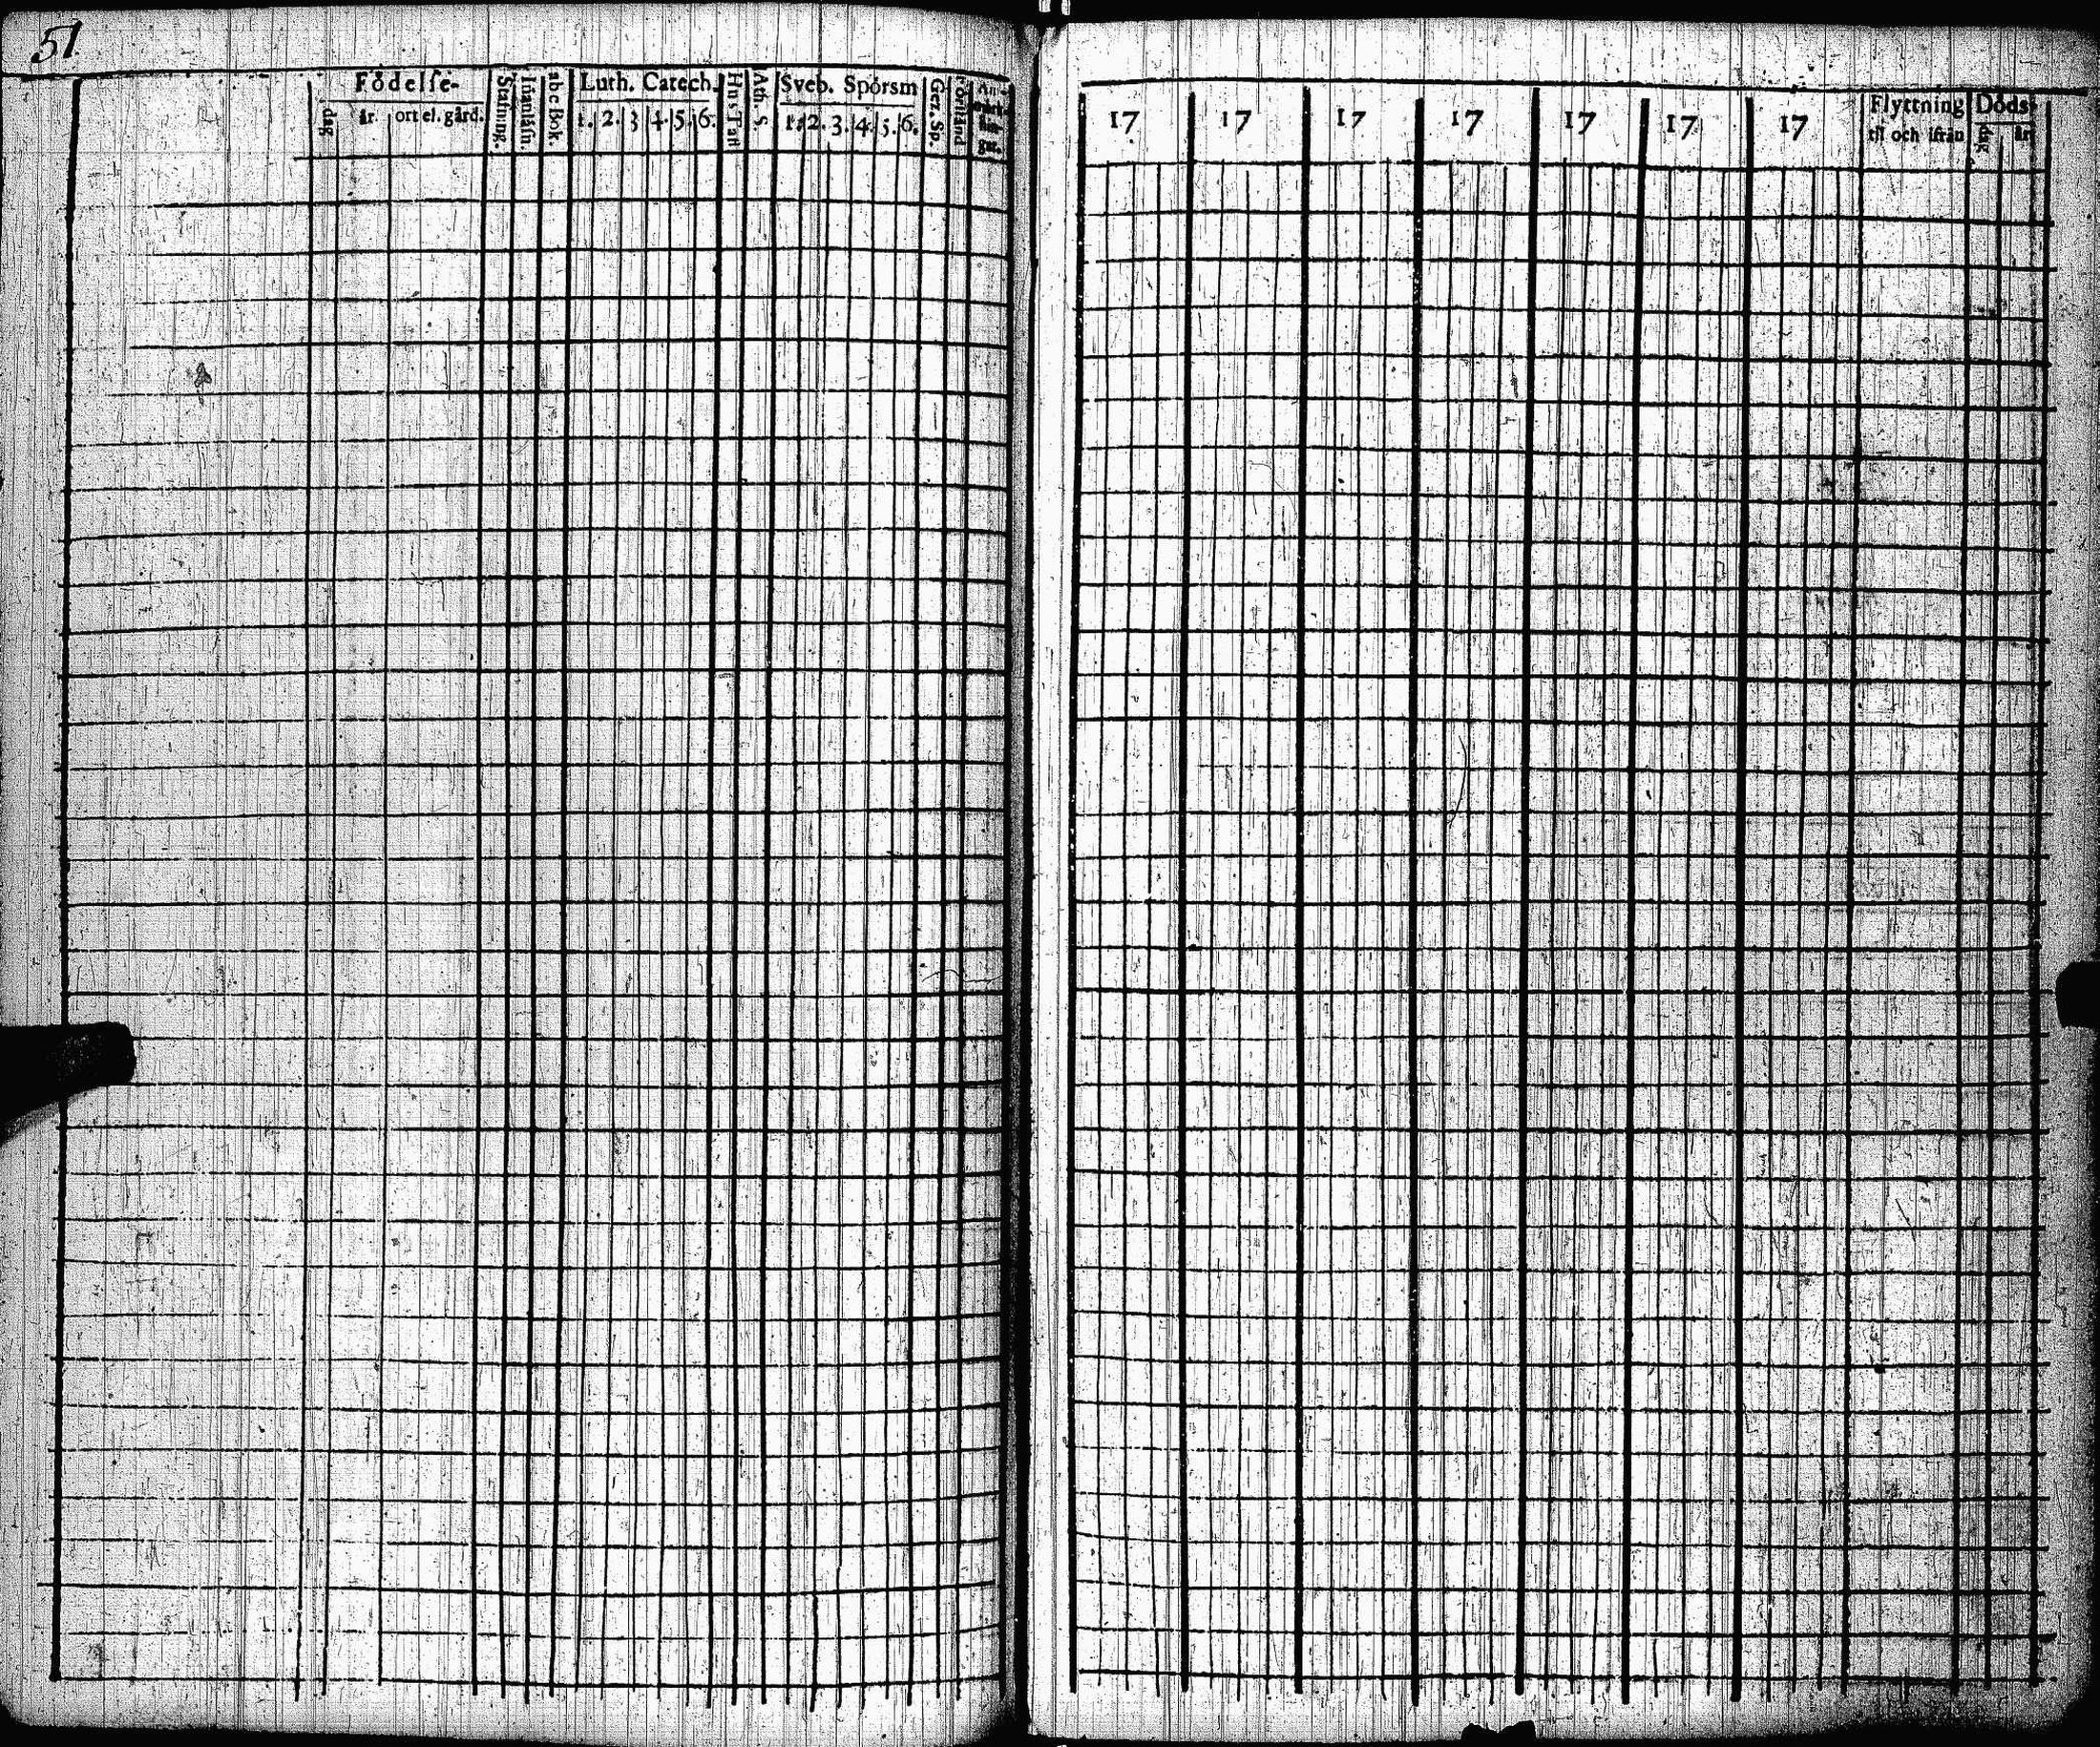 51
Födelse-
dag
år.
ort el. gård.
Stafning.
Inanläsn.
abc Bok.
Luth. Catech.
1. 2. 3 4. 5. 6.
Hus Tafl
Ath. S.
Sveb. Spörsm
1. 2. 3. 4. 5. 6.
Gez. Sp.
Förstånd
17 17 17 17 17 17 17
Flyttning
til och ifrån
Döds-
dag
år